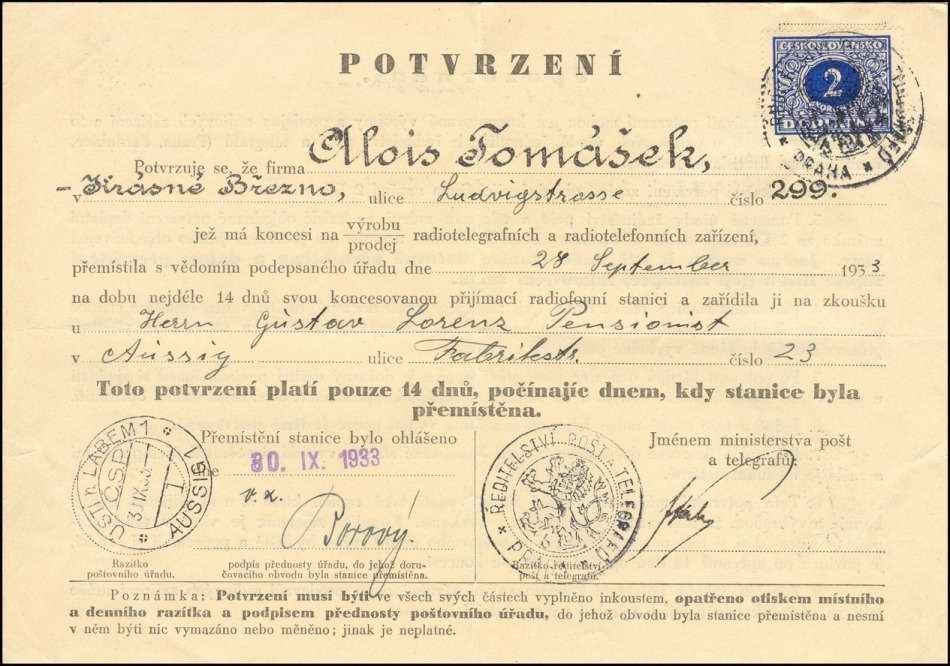 POTVRZENÍ
ČESKOSLOVENSKO
2
Potvrzuje se, že firma Alois Tomášek,
v Krásné Březno, ulice Ludvigstrasse číslo 299.
jež má koncesi na výrobu
prodej radiotelegrafních a radiotelefonních zařízení,
přemístila s vědomím podepsaného úřadu dne 28 September 1933
na dobu nejdéle 14 dnů svou koncesovanou přijímací radiofonní stanici a zařídila ji na zkoušku
u Herrn Gustav Lorenz Pensionist
v Aussig ulice Fabrikstr. číslo 23
Toto potvrzení platí pouze 14 dnů, počínajíc dnem, kdy stanice byla
přemístěna.
Přemístění stanice bylo ohlášeno
dne 30. IX. 1933
Borový.
Jménem ministerstva pošt
a telegrafů:
ÚSTÍ n. LABEM 1
AUSSIG 1
Č.S.P.
ŘEDITELSTVÍ POŠT A TELEGRAFŮ
PRAHA
Razítko
poštovního úřadu.
podpis přednosty úřadu, do jehož doru-
čovacího obvodu byla stanice přemístěna.
Razítko ředitelství
pošt a telegrafů.
Poznámka: Potvrzení musí býti ve všech svých částech vyplněno inkoustem, opatřeno otiskem místního
a denního razítka a podpisem přednosty poštovního úřadu, do jehož obvodu byla stanice přemístěna a nesmí
v něm býti nic vymazáno nebo měněno; jinak je neplatné.